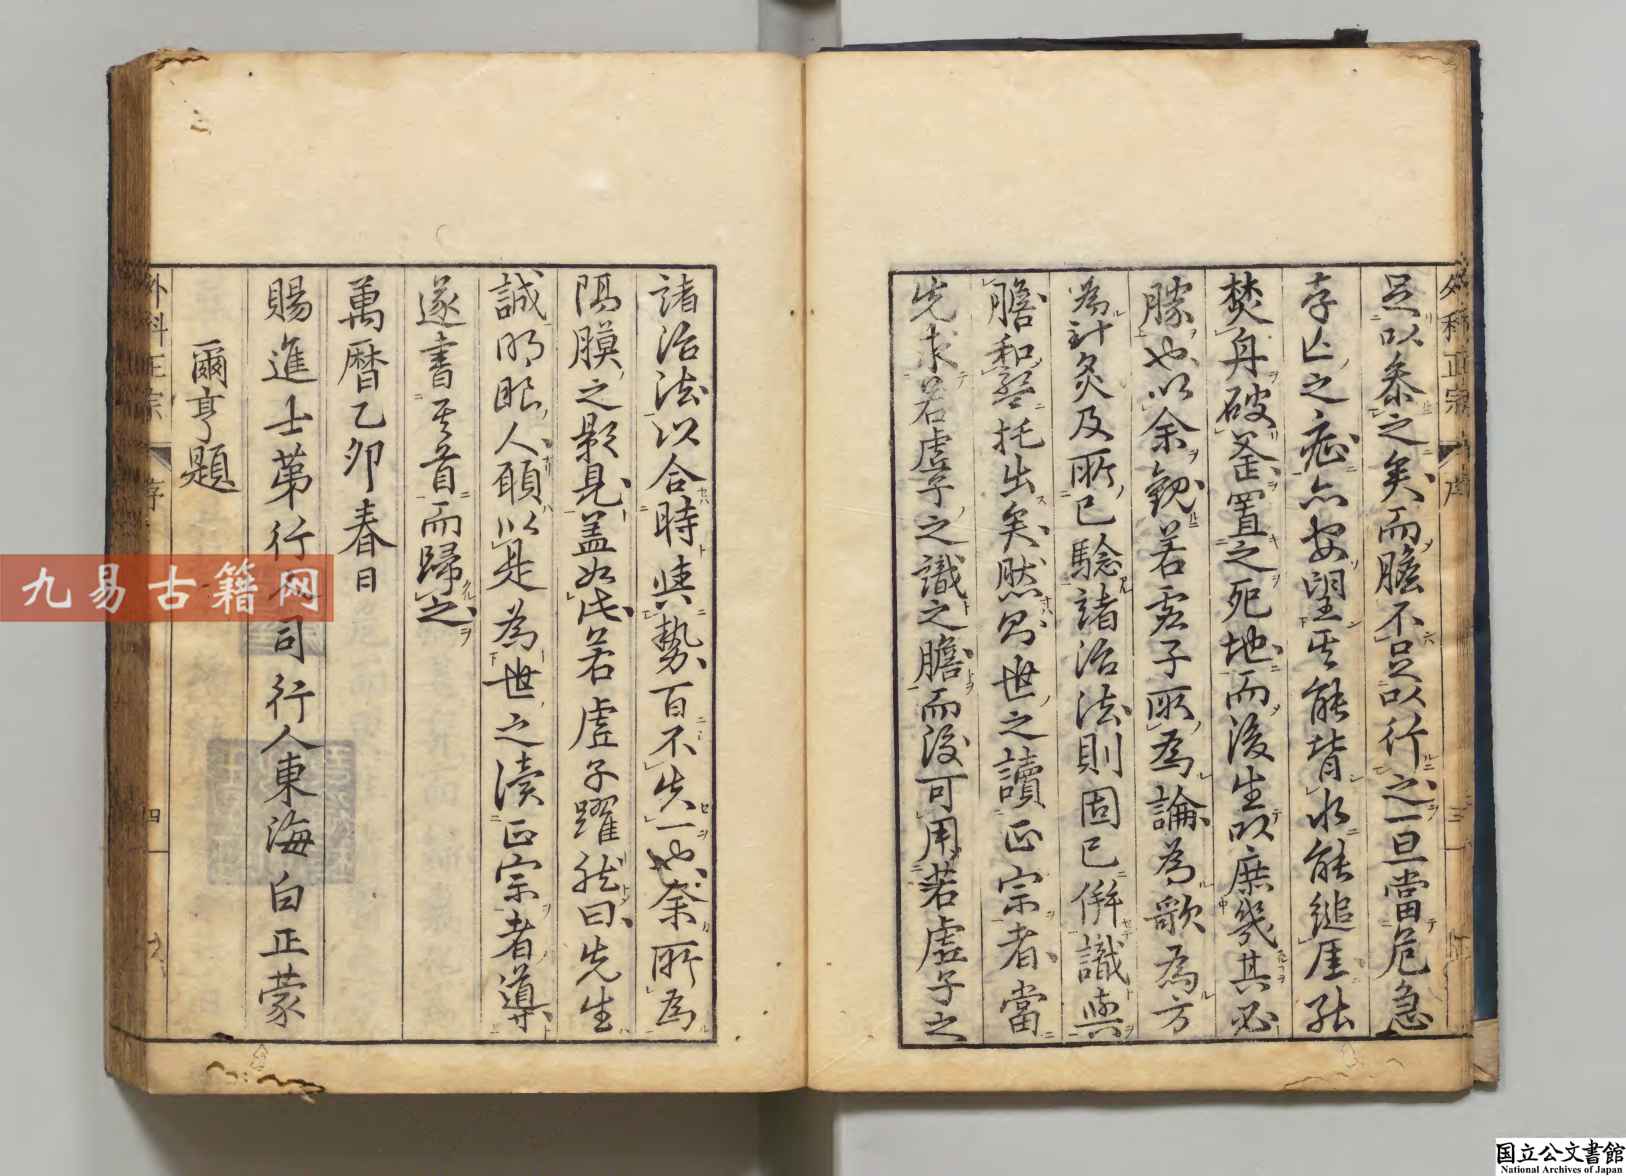 足以叅之矣而膽不足以行之一旦當危急
存亡之症亦安望其能背水能縋厓能
焚舟破釜置之死地而後生以庶幾其必
勝也以余觀若虚子所為論為歌為方
為計灸及所已驗諸治法則固已併識與
膽和盤托出矣然則世之讀正宗者當
先求若虚子之識之膽而後可用若虚子之
諸治法以合時與勢百不失一也余所為
隔膜之影見盖如此若虚子躍然曰先生
誠明眼人願以是為世之讀正宗者導
遂書其首而歸之
萬曆乙卯春日
賜進士第行人司行人東海白正蒙
爾亨題
外科正宗
序
四
外科正宗
序
三
九易古籍网
国立公文書館
National Archives of Japan